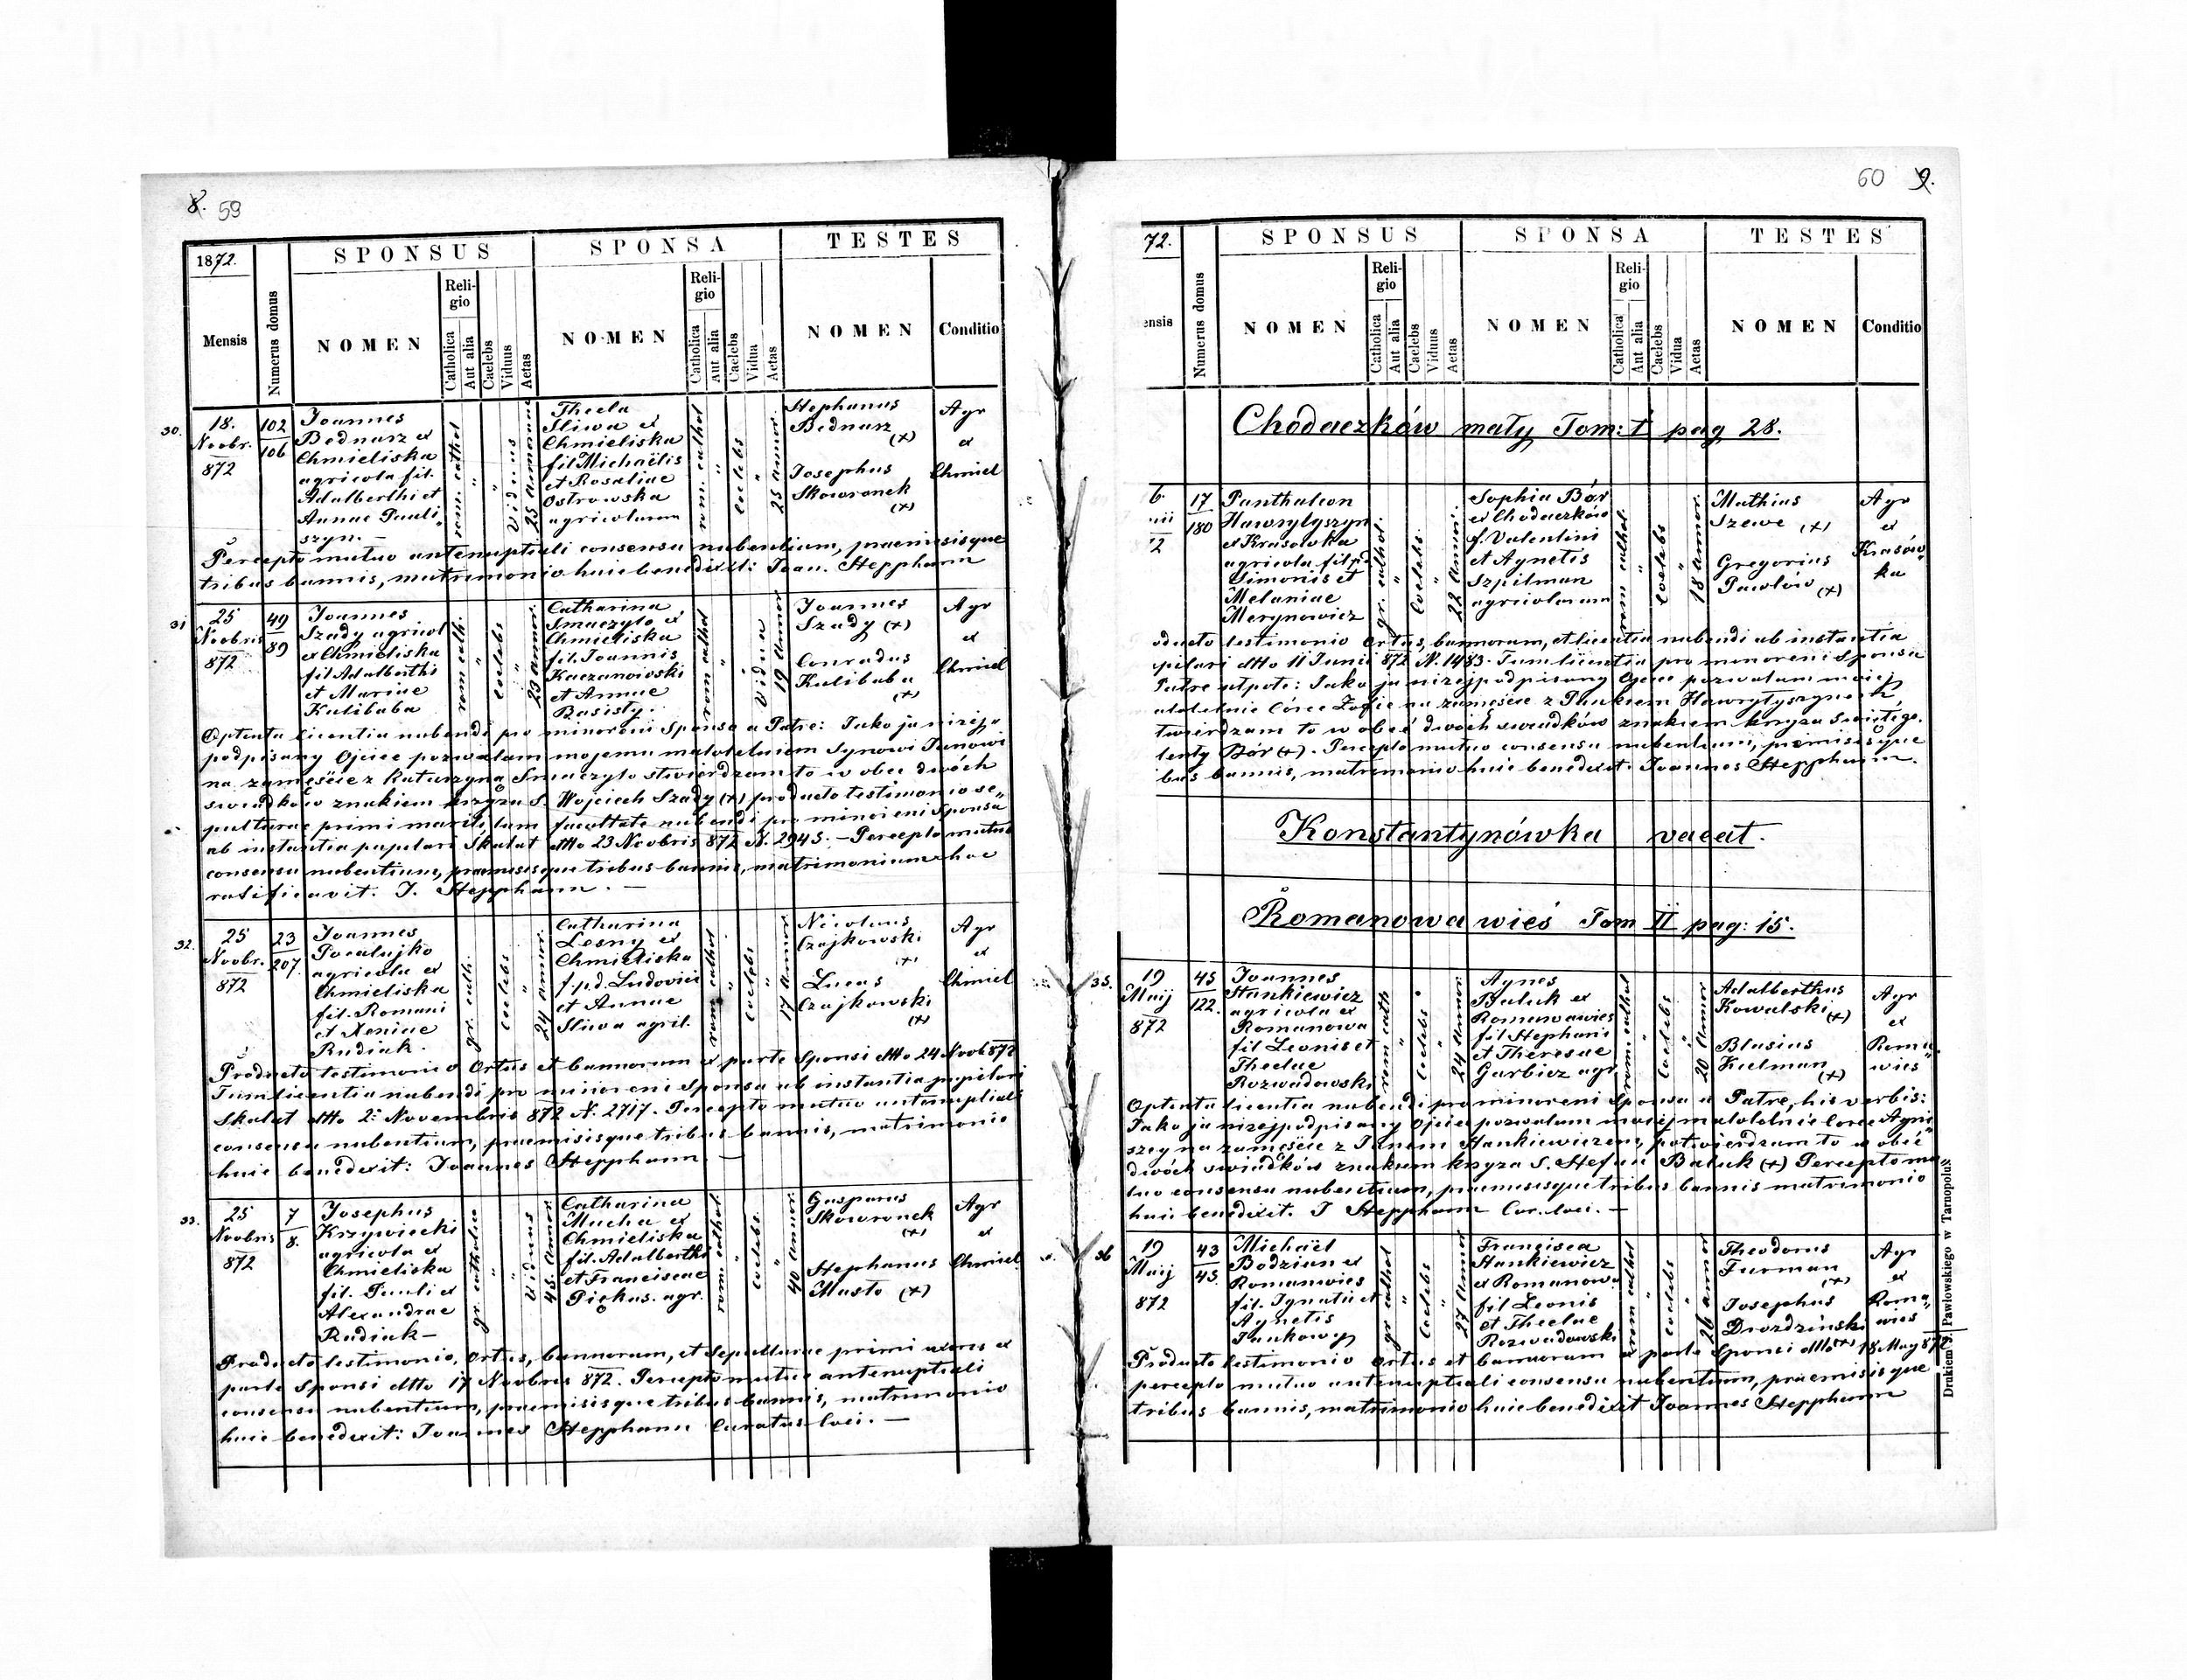 8. 59
1872.
Mensis
Numerus domus
SPONSUS
NOMEN
Religio
Catholica
Aut alia
Caelebs
Viduus
Aetas
SPONSA
NOMEN
Religio
Catholica
Aut alia
Caelebs
Vidua
Aetas
TESTES
NOMEN
Conditio
30.
18.
Noobr.
872
102
106
Joannes
Bednarz ex
Chmieliska
agricola fil.
Adalberthi et
Annae Pauli„
szyn. —
rom. cathol
"
"
Viduus
25 annorum
Thecla
Sliwa ex
Chmieliska
fil Michaëlis
et Rosaliae
Ostrowska
agricolarum
rom. cathol
"
coelebs
"
25 annor.
Stephanus
Bednarz
(+)
Josephus
Skowronek
(+)
Agr
ex
Chmiel
Percepto mutuo antenuptiali consensu nubentium, praemisisque
tribus bannis, matrimonio huic benedixit: Joan. Stepphann
31
25
Noobris
872
49
89
Joannes
Szady agricol
ex Chmieliska
fil Adalberthi
et Mariae
Kulibaba
rom cath.
"
coelebs
"
23 annor.
Catharina
Smaczyło ex
Chmieliska
fil. Joannis
Kaczanowski
et Annae
Basisty.
rom cathol
"
Vidua
19 annor
Joannes
Szady (+)
Conradus
Kulibaba
(+)
Agr
ex
Chmiel
Optenta licentia nubendi pro minoreni Sponso a Patre: Jako ja niżej„
podpisany Ojciec pozwalam mojemu małoletniem Synowi Janowi
na zamęście z Katarzyna Smaczyło stwierdzam to w obec dwóch
swiadków znakiem krzyża S. Wojciech Szady (+) producto testimonio se„
pulturae primi mariti, tum facultate nubendi pro minoreni Sponsa
ab instantia pupilari Skałat dtto 23 Noobris 872 N. 2945. — Percepto mutuo
consensu nubentium, praemisisque tribus bannis, matrimonium hoc
ratificavit. J. Stepphann. —
32.
25
Noobr.
872
23
207.
Joannes
Pocałujko
agricola ex
Chmieliska
fil. Romani
et Xeniae
Rudiak.
gr. cath.
"
coelebs
"
24 annor.
Catharina
Lesny ex
Chmieliska
f. p. d. Ludovici
et Annae
Sliwa agril.
rom cathol
"
coelebs
"
17 annor
Nicolaus
Czajkowski
(+)
Lucas
Czajkowski
(+)
Agr
ex
Chmiel
Producto testimonio Ortus et bannorum ex parte Sponsi dtto 24 Noob 872
Tum licentia nubendi pro minoreni Sponsa ab instantia pupilari
Skałat dtto 2: Novembris 872 N. 2717. Percepto mutuo antenuptiali
consensu nubentium, praemisisque tribus bannis, matrimonio
huic benedixit: Joannes Stepphann —
33.
25
Noobris
872
7
8.
Josephus
Krzywiecki
agricola ex
Chmieliska
fil. Pauli et
Alexandrae
Rudiak —
gr. catholica
"
"
Viduus
45 annor.
Catharina
Mucha ex
Chmieliska
fil. Adalberthi
et Franciscae
Piękus. agr.
rom. cathol.
"
coelebs.
"
40 annor.
Gasparus
Skowronek
(+)
Stephanus
Musto (+)
Agr
ex
Chmiel.
Producto testimonio, Ortus, bannorum, et Sepulturae primi uxoris ex
parte Sponsi dtto 17 Noobris 872. Percepto mutuo antenuptiali
consensu nubentium, praemisisque tribus bannis, matrimonio
huic benedixit: Joannes Stepphann Curatus loci. —
60 9.
72.
ensis
Numerus domus
SPONSUS
NOMEN
Religio
Catholica
Aut alia
Caelebs
Viduus
Aetas
SPONSA
NOMEN
Religio
Catholica
Aut alia
Caelebs
Vidua
Aetas
TESTES
NOMEN
Conditio
Chodaczków mały Tom: I pag 28.
6.
nii
72
17
180
Panthaleon
Hawryłyszyn
ex Krasówka
agricola fil pd
Simonis et
Melaniae
Merynowicz
gr. cathol.
"
Coelebs.
"
22 annor.
Sophia Bór
ex Chodaczków
f. Valentini
et Agnetis
Szpilman
agricolarum
rom cathol.
"
Coelebs
"
18 annor.
Mathias
Szewc (+)
Gregorius
Pawłów (+)
Agr
ex
Krasów„
ka
oducto testimonio Ortus, bannorum, et licentia nubendi ab instantia
upilari dtto 11 Junii 872 N. 1483. Tum licentia pro minoreni Sponsa
Patre utpote: Jako ja niżejpodpisany Ojciec pozwalam mojej
ałoletnie Córce Zofie na zamęście z Pankiem Hawryłyszynem
twierdzam to w obec dwóch swiadków znakiem krzyża Swiętego.
lenty Bór (+). Percepto mutuo consensu nubentium, premisisque
bus bannis, matrimonio huic benedixit. Joannes Stepphann.
Konstantynówka vacat.
Romanowa wieś Tom II pag: 15.
35.
19
Maij
872
45
122.
Joannes
Stankiewicz
agricola ex
Romanowa
fil Leonis et
Theclae
Rozwadowski
rom cath
"
Coelebs
"
24 annor.
Agnes
Baluk ex
Romanawies
fil Stephani
et Theresae
Garbicz agr.
rom. cathol
"
Coelebs
"
20 annor
Adalberthus
Kowalski (+)
Blasius
Kulman
(+)
Agr
ex
Roma„
wies
Optenta licentia nubendi pro minoreni Sponsa a Patre, his verbis:
Jako ja niżejpodpisany Ojciec pozwalam mojej małoletnie Corce Agni„
szcy na zamęście z Janem Stankiewiczem, potwierdzam to w obec
dwóch swiadków znakiem krzyza S. Stefan Baluk (+) Percepto mu„
tuo consensu nubentium, praemisisque tribus bannis matrimonio
huic benedixit. J Stepphann Cur. loci. —
36
19
Maij
872
43
45.
Michaël
Bodzian ex
Romanwies
fil. Ignatii et
Agnetis
Pankowy
gr cathol
"
Coelebs
"
27 annor
Francisca
Stankiewicz
ex Romanowa
fil Leonis
et Theclae
Rozwadowski
rom cathol
"
coelebs
"
26 annor
Theodorus
Furman
(+)
Josephus
Drozdzinski
(+)
Agr
ex
Roma„
wies
Producto testimonio Ortus et bannorum ex parte Sponsi dtto 18 May 872
percepto mutuo antenuptiali consensu nubentium, praemisisque
tribus bannis, matrimonio huic benedixit Joannes Stepphann
Drukiem J. Pawłowskiego w Tarnopolu.